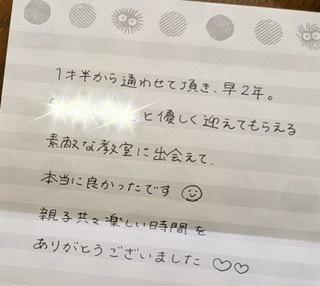 1才半から通わせて頂き、早2年。
と優しく迎えてもらえる
素敵な教室に出会えて、
本当に良かったです
親子共々楽しい時間を
ありがとうございました ♡♡